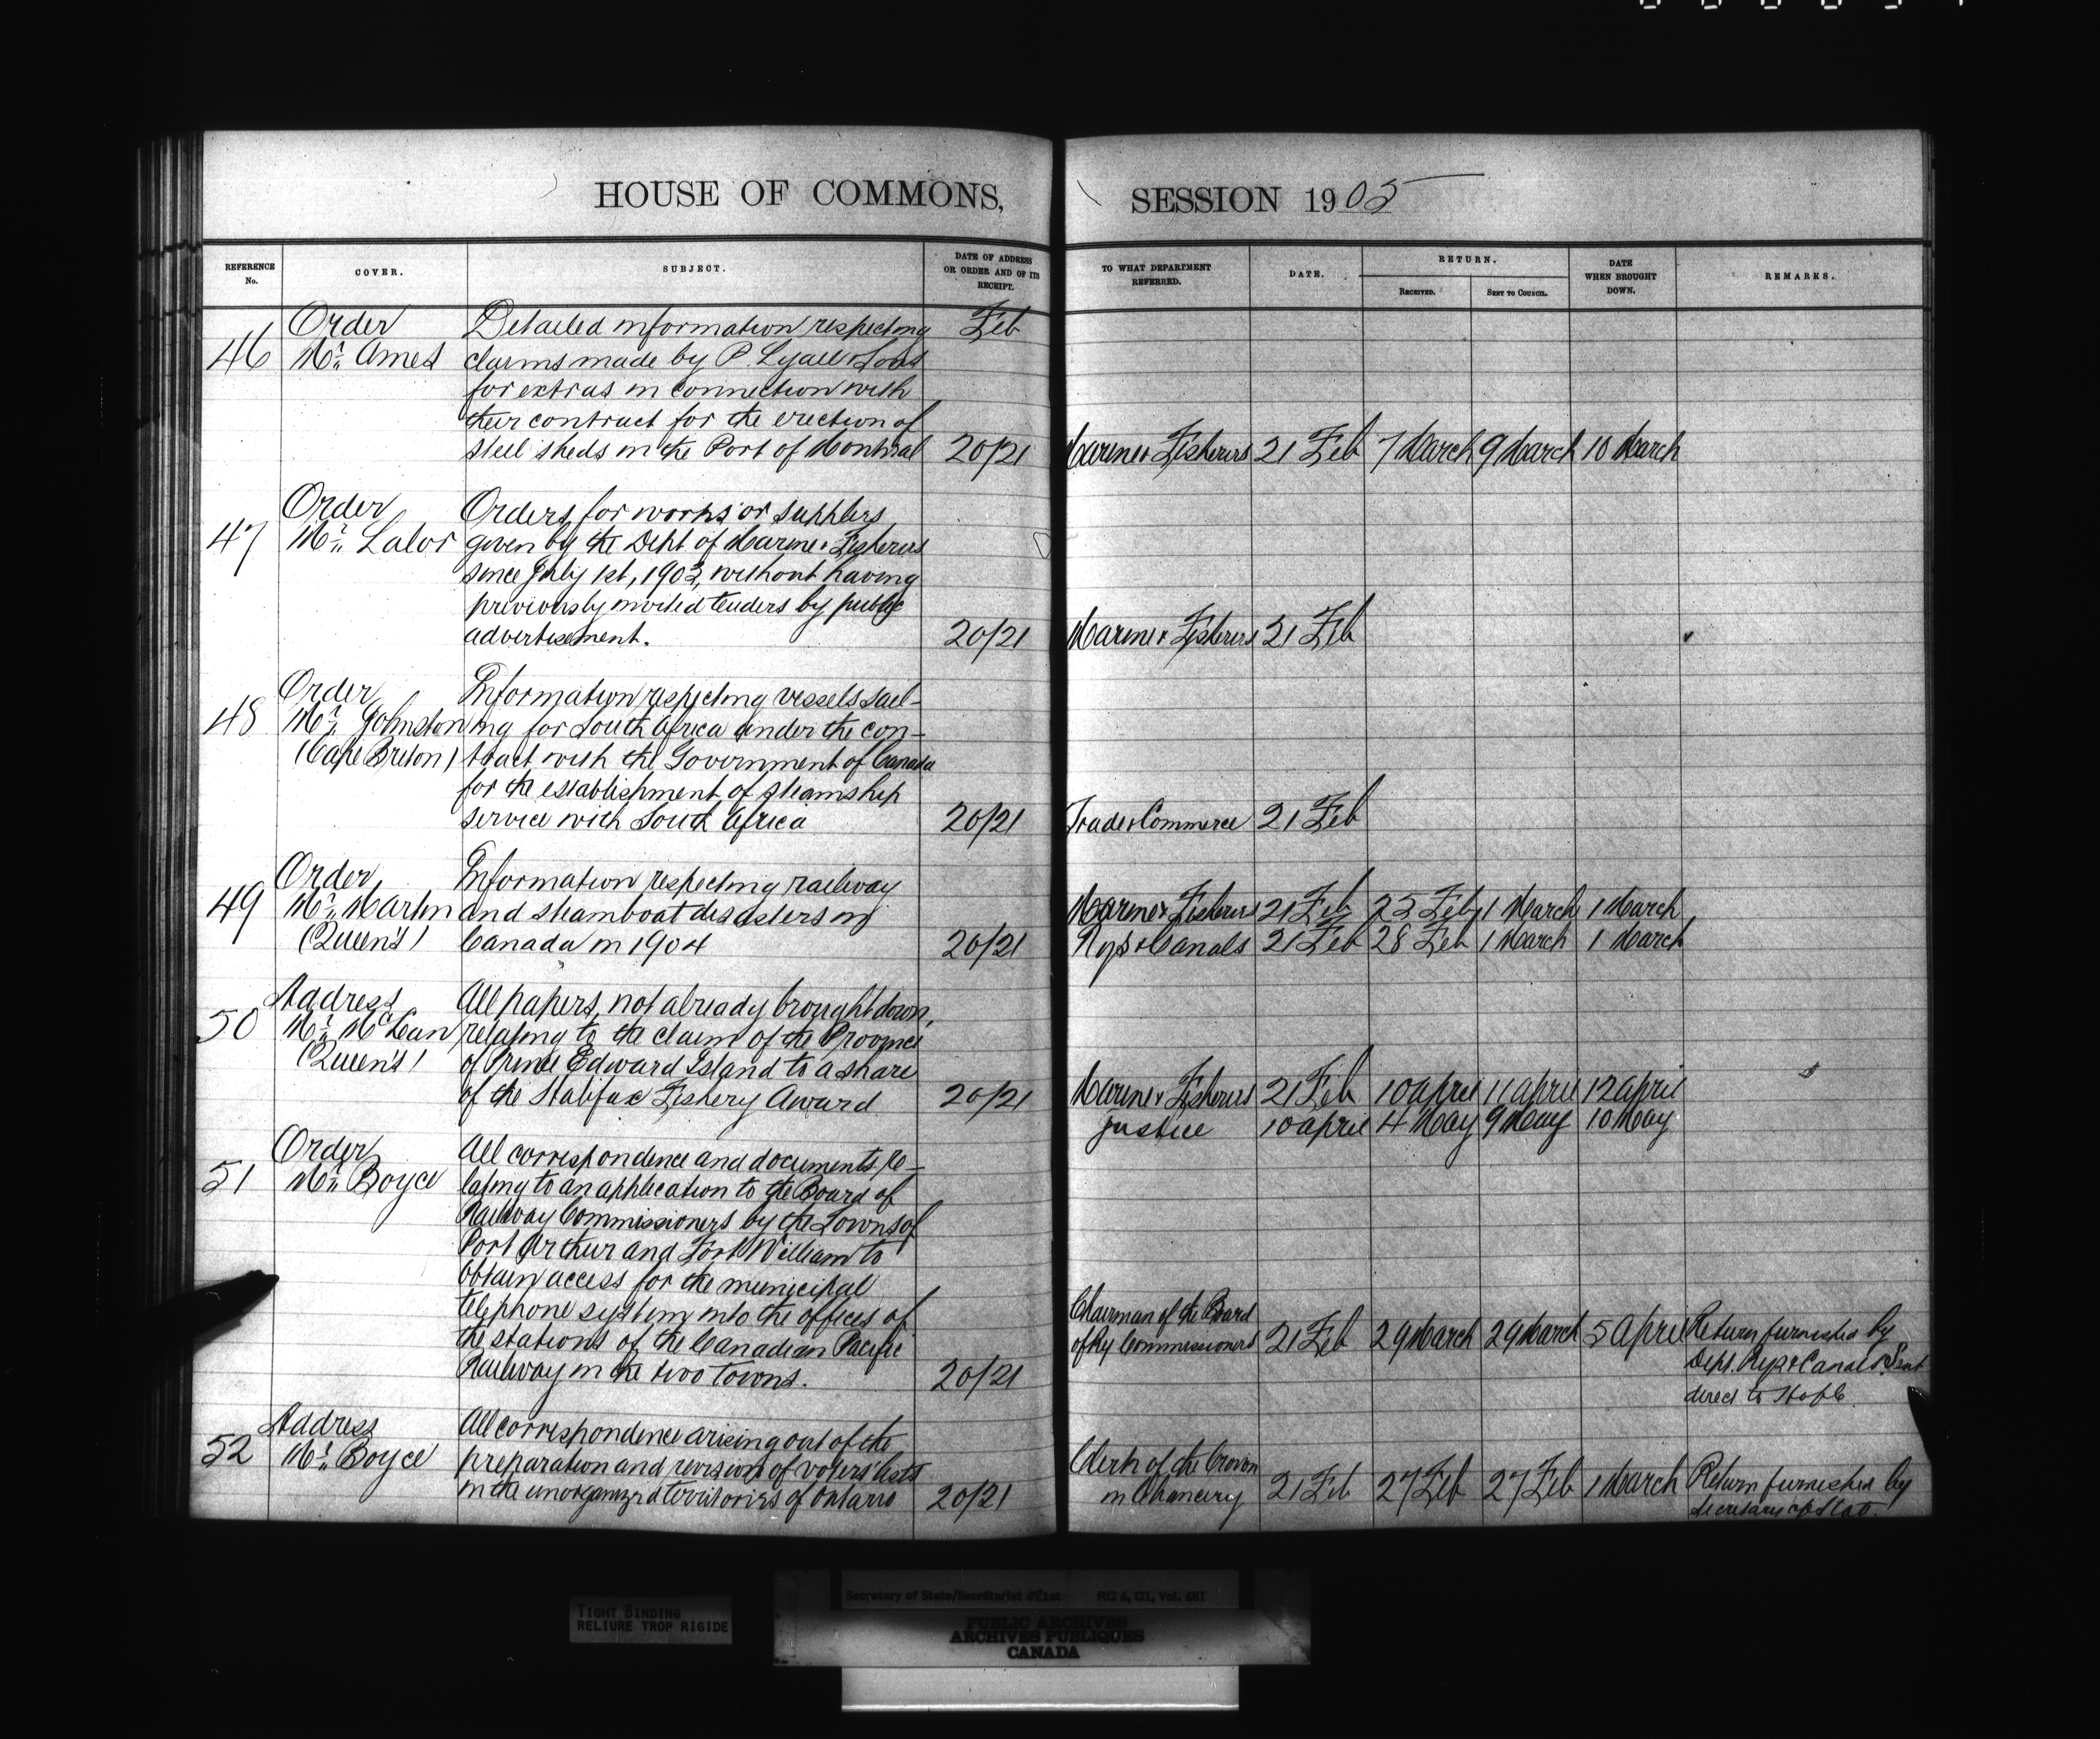 HOUSE OF COMMONS,
REFERENCE No.
COVER.
SUBJECT.
DATE OF ADDRESS OR ORDER AND OF ITS RECEIPT.
46
Order
Mr. Ames
Detailed information respecting
claims made by P. Lyall & Sons
for extras in connection with
their contract for the erection of
steel sheds in the Port of Montreal
Feb
20/21
47
Order
Mr. Lalor
Orders, for works or supplies
given by the Dept of Marine & Fisheries
since July 1st, 1903, without having
previously invited tenders by public
advertisement.
20/21
48
Order
Mr. Johnston
(Cape Breton)
Information respecting vessels sail-
ing for South Africa under the con-
tract with the Government of Canada
for the establishment of steamship
service with South Africa
20/21
49
Order
Mr. Martin
(Queen's)
Information respecting railway
and steamboat disasters in
Canada in 1904
20/21
50
Address
Mr. McLean
(Queen's)
All papers, not already brought down,
relating to the claim of the Province
of Prince Edward Island to a share
of the Halifax Fishery Award
20/21
51
Order
Mr. Boyce
All correspondence and documents re-
lating to an application to the Board of
Railway Commissioners by the Towns of
Port Arthur and Fort William to
obtain access for the municipal
telephone system into the offices of
the stations of the Canadian Pacific
Railway in the two towns.
20/21
52
Address
Mr. Boyce
All correspondence arising out of the
preparation and revision of voters' lists
in the unorganized territories of Ontario
20/21
SESSION 1905
TO WHAT DEPARTMENT REFERRED.
DATE.
RETURN.
RECEIVED.
SENT TO COUNCIL.
DATE WHEN BROUGHT DOWN.
REMARKS.
Marine & Fisheries 21 Feb 7 March 9 March 10 March
Marine & Fisheries 21 Feb
Trade & Commerce 21 Feb
Marine & Fisheries 21 Feb 23 Feby 1 March 1 March
Rys & Canals 21 Feb 28 Feb 1 March 1 March
Marine & Fisheries 21 Feb 10 april 11 april 12 april
Justice 10 april 4 May 9 May 10 May
Chairman of the Board
of Ry Commissioners 21 Feb 29 March 29 March 5 April Return furnished by
Dept. Rys & Canals. Sent
direct to H of C.
Clerk of the Crown
in Chancery 21 Feb 27 Feb 27 Feb 1 March Return furnished by
Secretary of State.
TIGHT BINDING
RELIURE TROP RIGIDE
Secretary of State/Secrétariat d'État RG 6, Vol. 681
PUBLIC ARCHIVES
ARCHIVES PUBLIQUES
CANADA